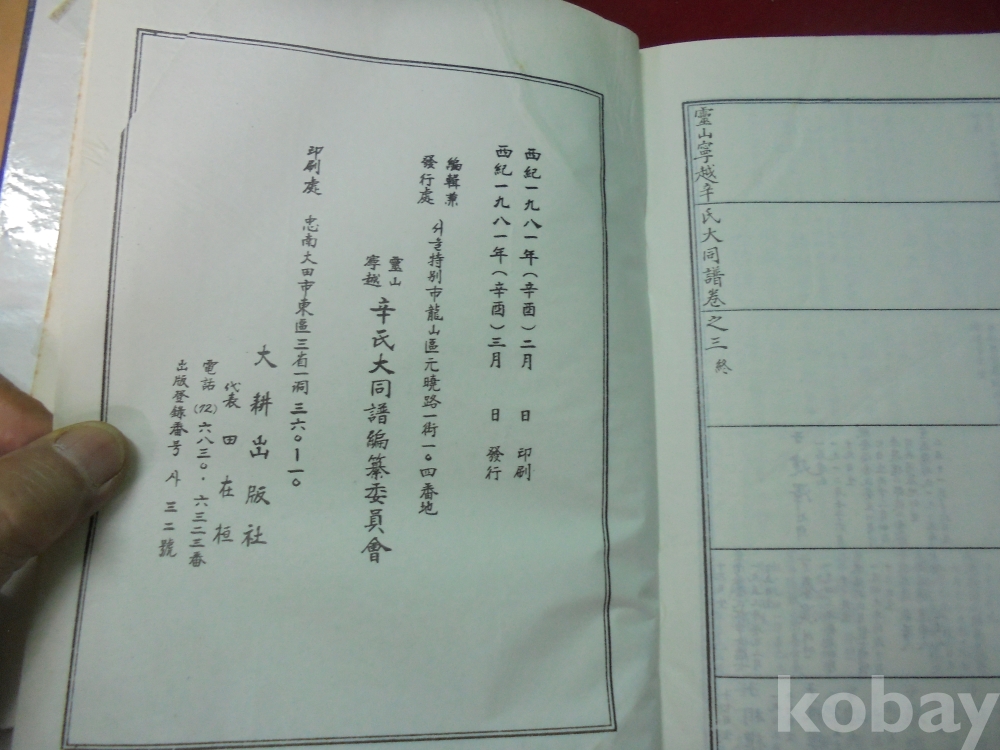 靈山寧越辛氏大同譜卷之三 終
西紀一九八一年(辛酉)二月 日 印刷
西紀一九八一年(辛酉)三月 日 發行
編輯兼
發行處 서울特別市龍山區元曉路一街一〇四番地
靈山
寧越 辛氏大同譜編纂委員會
印刷處 忠南大田市東區三省一洞 三六〇—一〇
大耕出版社
代表 田在桓
電話 (72) 六八三〇·六三二三番
出版登錄番号 사 三二號
kobay